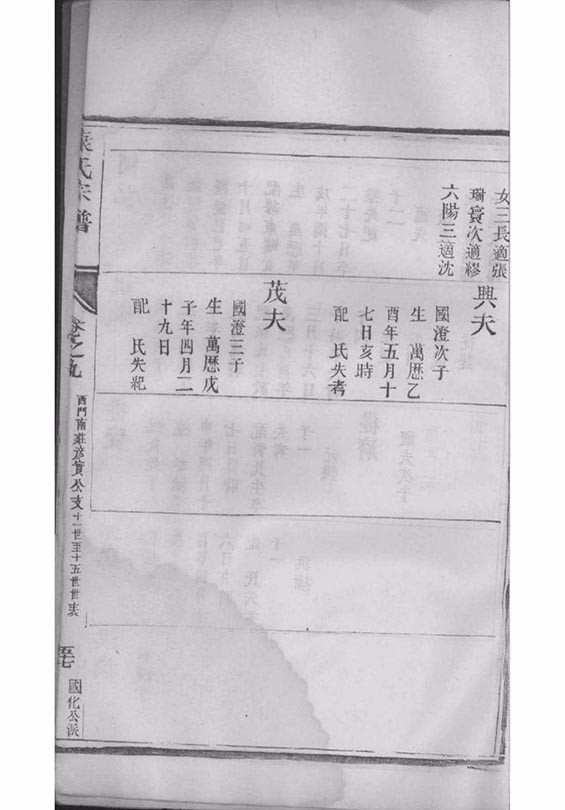 女三長適張
瑞賓次適繆
六陽三適沈
興夫
國澄次子
生　萬曆乙
酉年五月十
七日亥時
配　氏失考
茂夫
國澄三子
生　萬曆戊
子年四月二
十九日
配　氏失紀
氏宗譜
卷之九
西門南莊彥賓公支十一世至十五世世表
國化公派